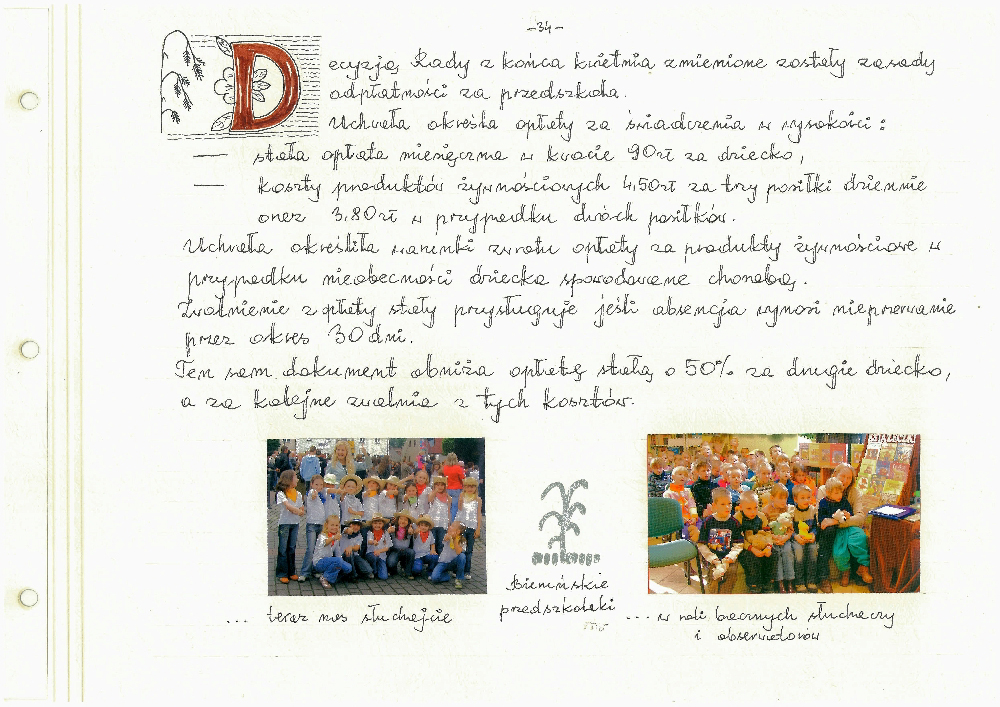 -34-
Decyzją Rady z końca kwietnia zmienione zostały zasady
odpłatności za przedszkola.
Uchwała określa opłaty za świadczenia w wysokości:
— stała opłata miesięczna w kwocie 90zł za dziecko,
— koszty produktów żywnościowych 4,50zł za trzy posiłki dziennie
oraz 3,80zł w przypadku dwóch posiłków.
Uchwała określiła warunki zwrotu opłaty za produkty żywnościowe w
przypadku nieobecności dziecka spowodowane chorobą.
Zwolnienie z opłaty stały przysługuje jeśli absencja wynosi nieprzerwanie
przez okres 30 dni.
Ten sam dokument obniża opłatę stałą o 50% za drugie dziecko,
a za kolejne zwalnia z tych kosztów.
KSIĄŻECZKI
... teraz nas słuchajcie
Bieruńskie
przedszkolaki
... w roli bacznych słuchaczy
i obserwatorów